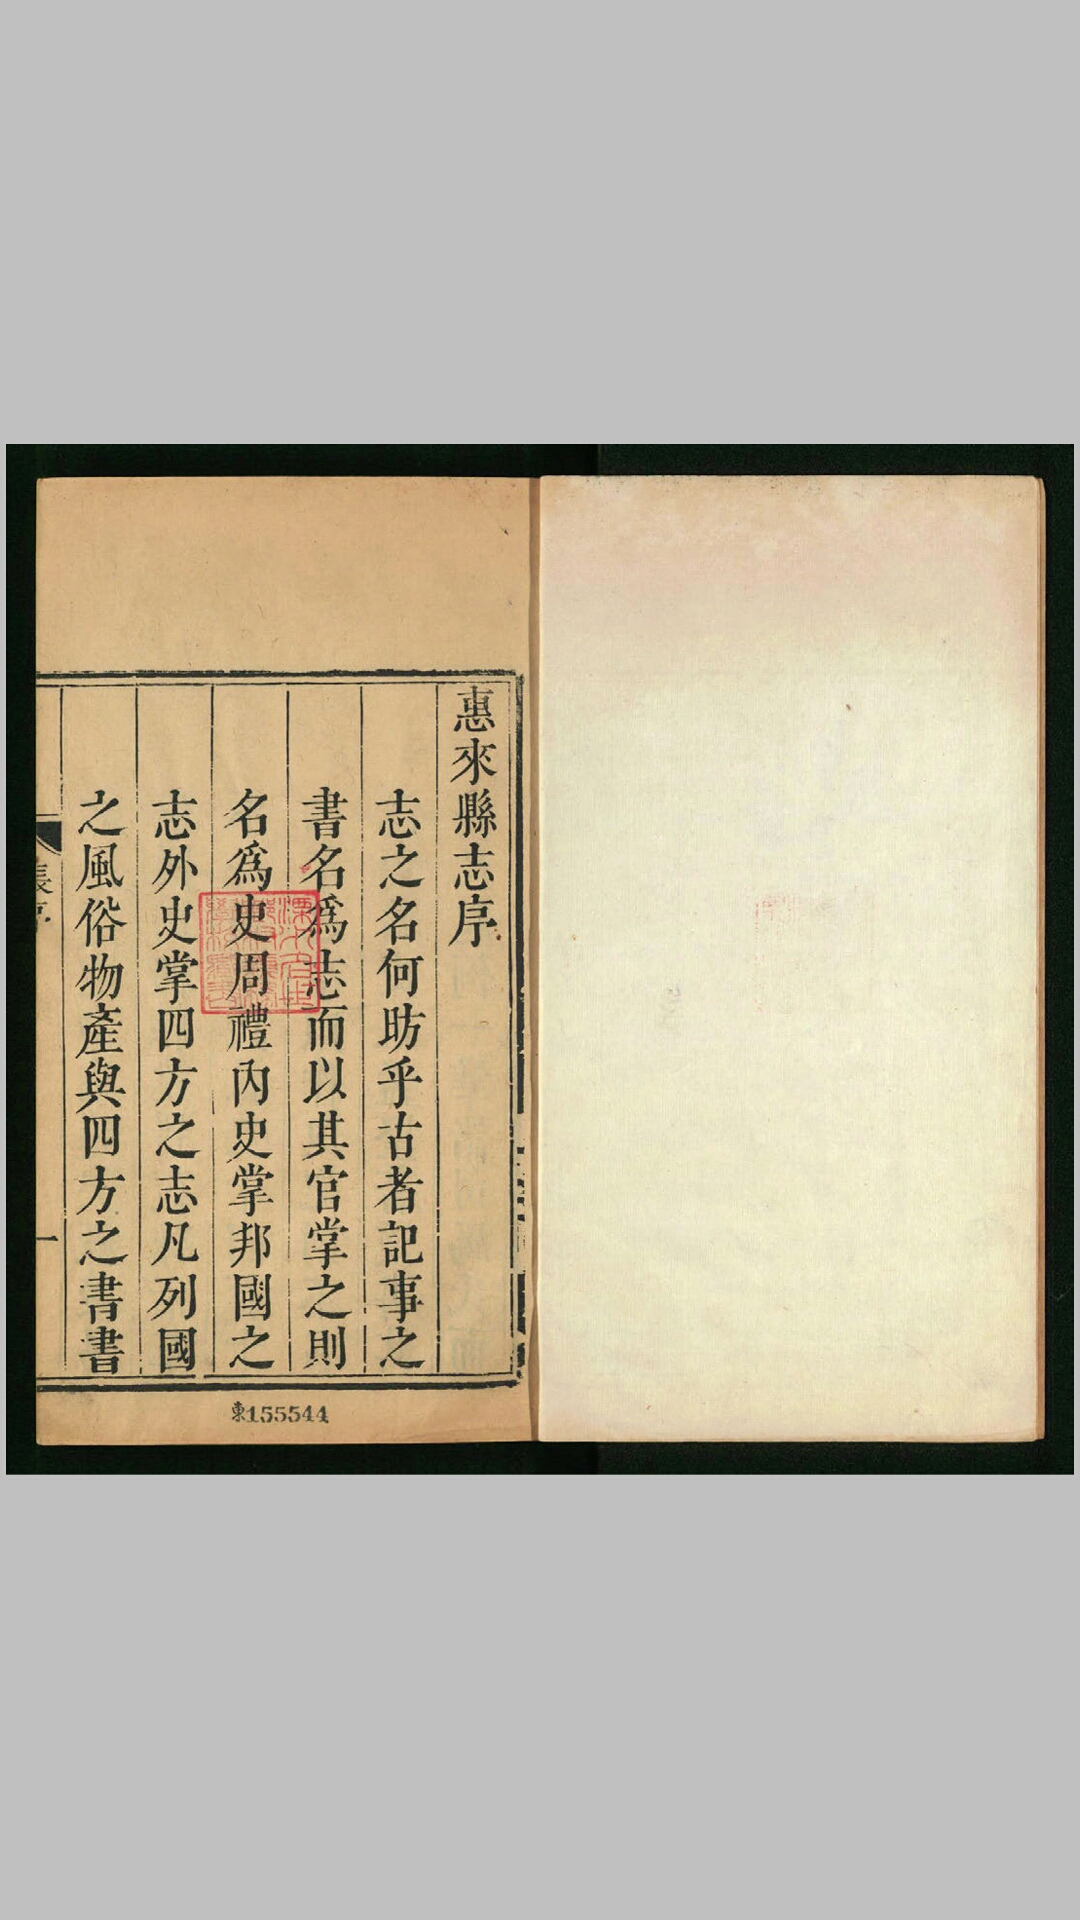 惠來縣志序
志之名何昉乎古者記事之
書名爲志而以其官掌之則
名爲史周禮內史掌邦國之
志外史掌四方之志凡列國
之風俗物產與四方之書書
張序
一
東155544